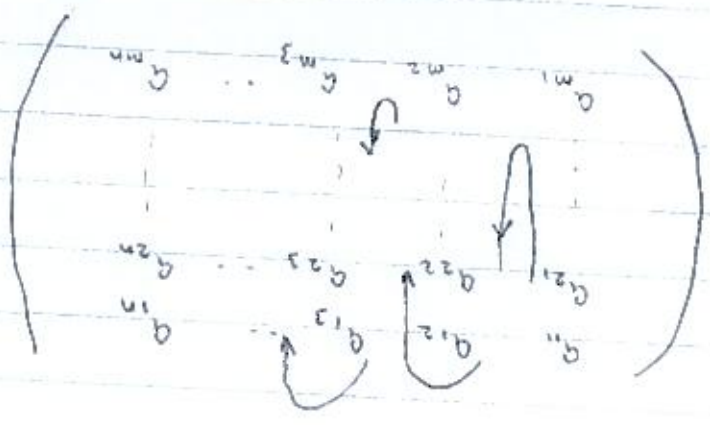 a₁₁ a₁₂ a₁₃ ... a₁ₙ
a₂₁ a₂₂ a₂₃ ... a₂ₙ
aₘ₁ aₘ₂ aₘ₃ ... aₘₙ